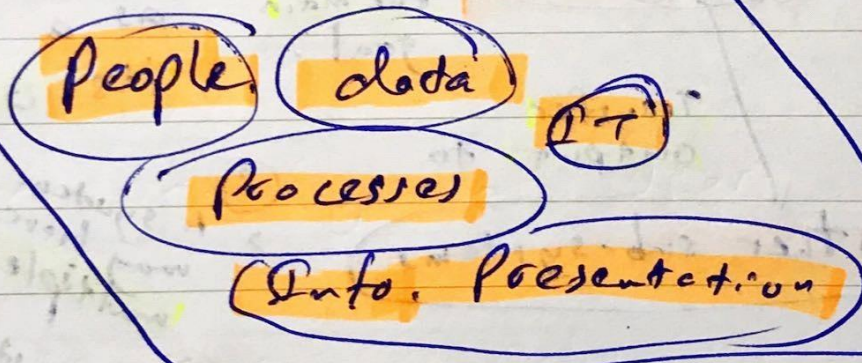 People data
IT
Processes
(Info. Presentation